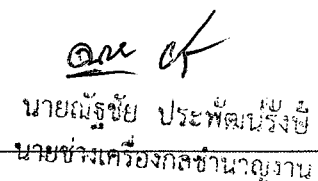 นายณัฐชัย ประพัฒน์รังษี
นายช่างเครื่องกลชำนาญงาน